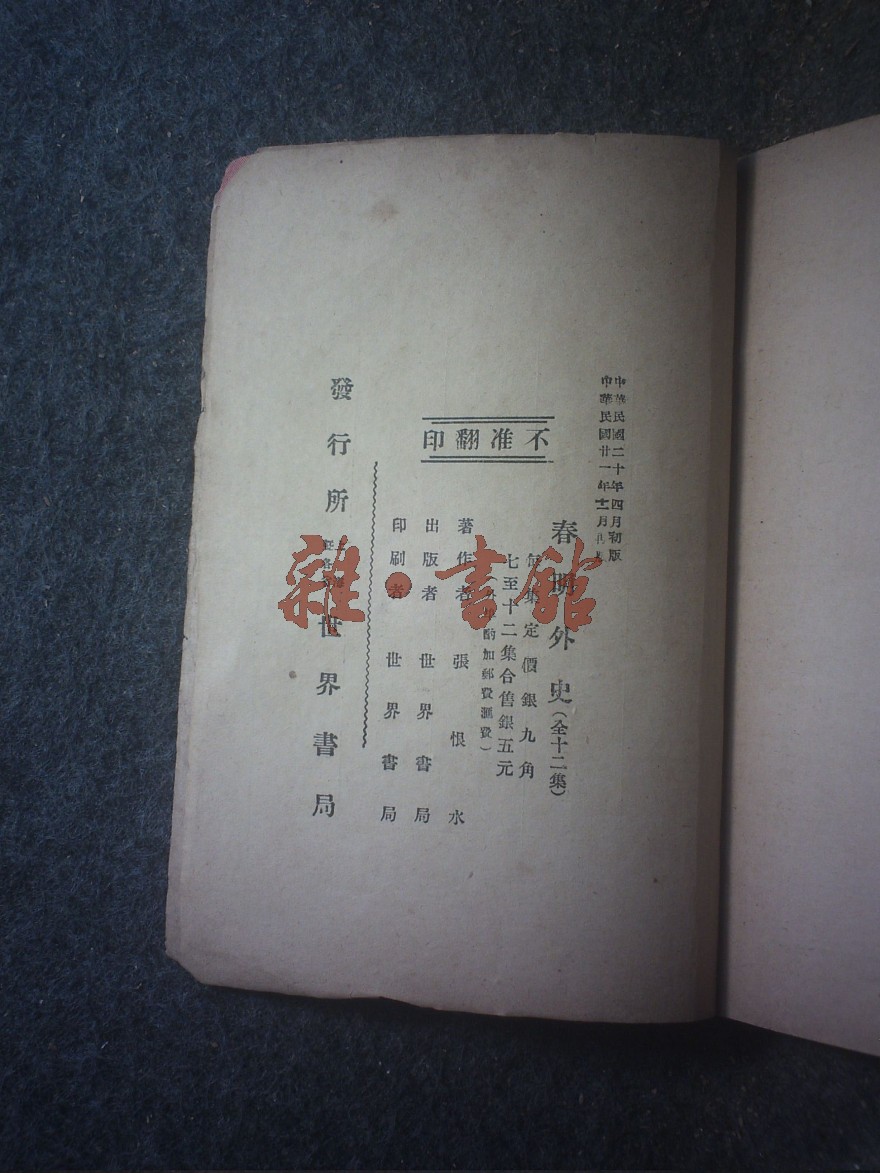 中華民國二十年四月初版
中華民國廿一年十一月再版
不准翻印
春明外史(全十二集)
每集定價銀九角
七至十二集合售銀五元
酌加郵費滙費)
著作者 張恨水
出版者 世界書局
印刷者 世界書局
發行所 世界書局
雜·書館